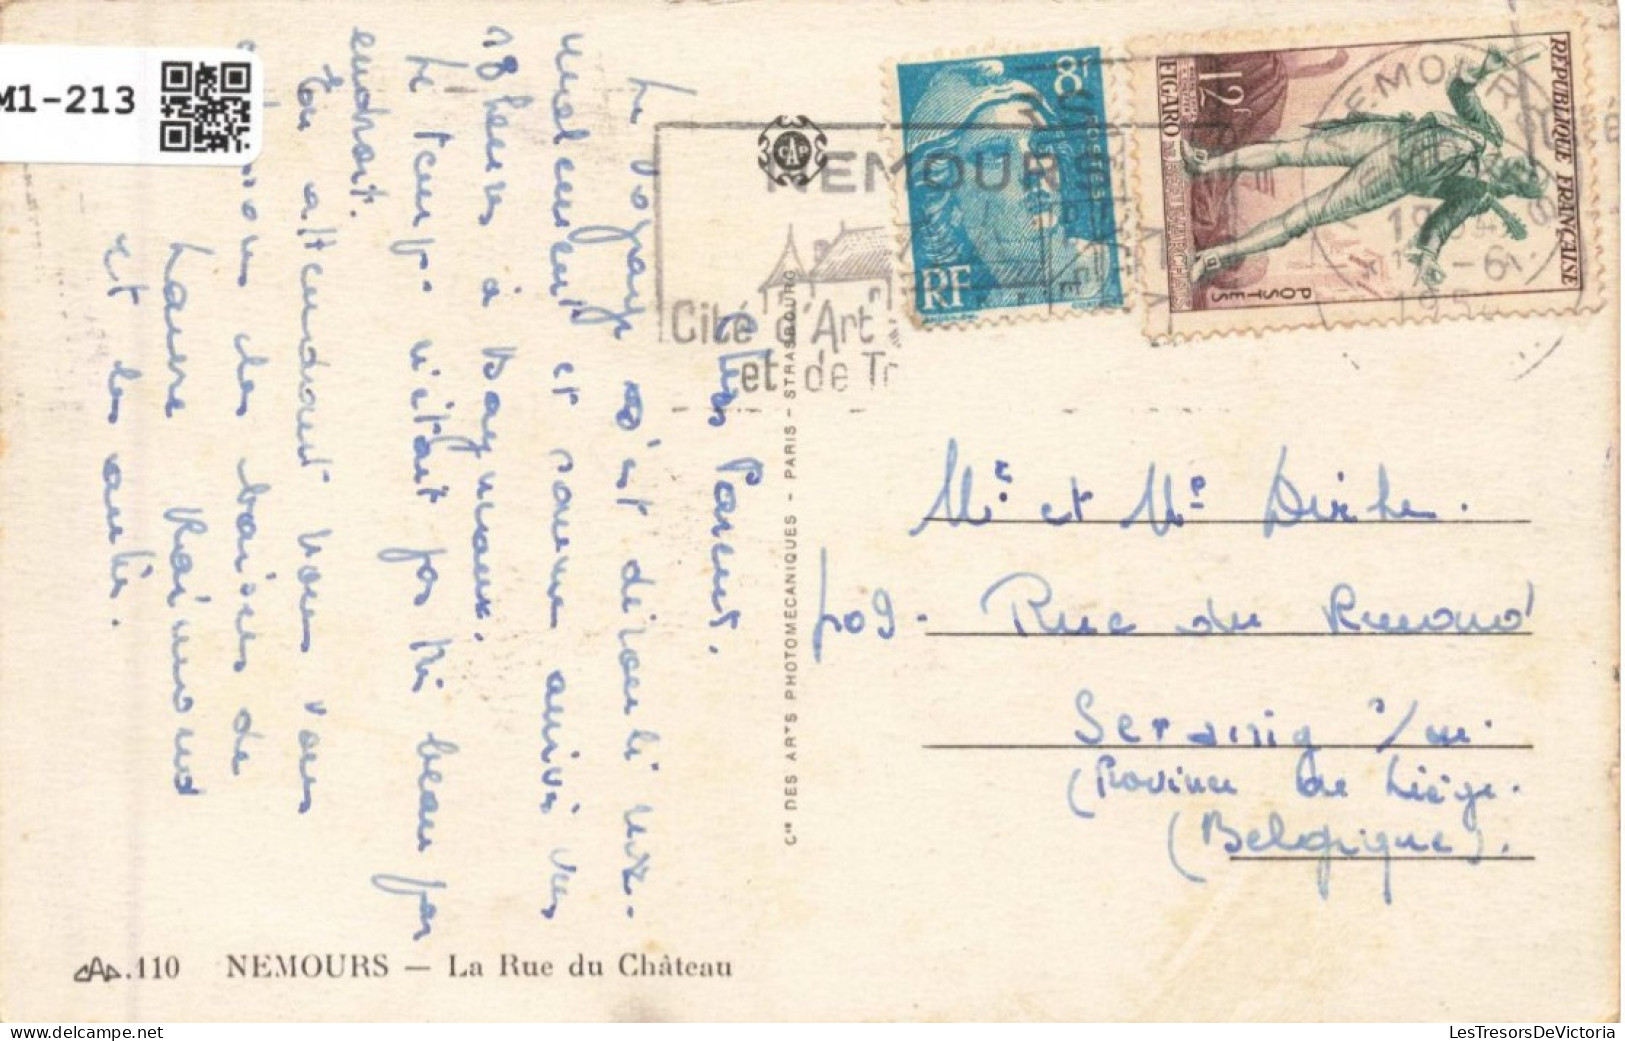 M1-213
Chers Parents.
Le voyage s'est déroulé nor-
malement et sommes arrivés vers
18 heures à Bayonne.
Le temps n'étant pas très beau par
endroit.
En attendant nous vous
des baisers de
Laure Raimond
et les autres.
CAP
NEMOURS
Cité d'Art
et de
8F
POSTES
RF
12F
FIGARO
REPUBLIQUE FRANÇAISE
POSTES
NEMOURS
1954
Cie DES ARTS PHOTOMECANIQUES - PARIS - STRASBOURG
Mr et Me
409 - Rue du
Seraing s/m.
(Province de Liège.
(Belgique).
CAP.110 NEMOURS — La Rue du Château
LesTresorsDeVictoria